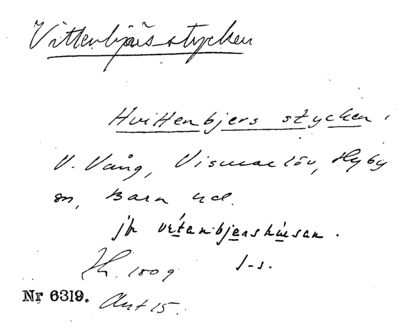 Vittenbjärsstycken
Hvittenbjers stycken,
V. Vång, Vismarlöv, Hyby
sn, Bara hd.
jfr vitanbjershusan.
1809 l-s.
Nr 6319. Akt 15.